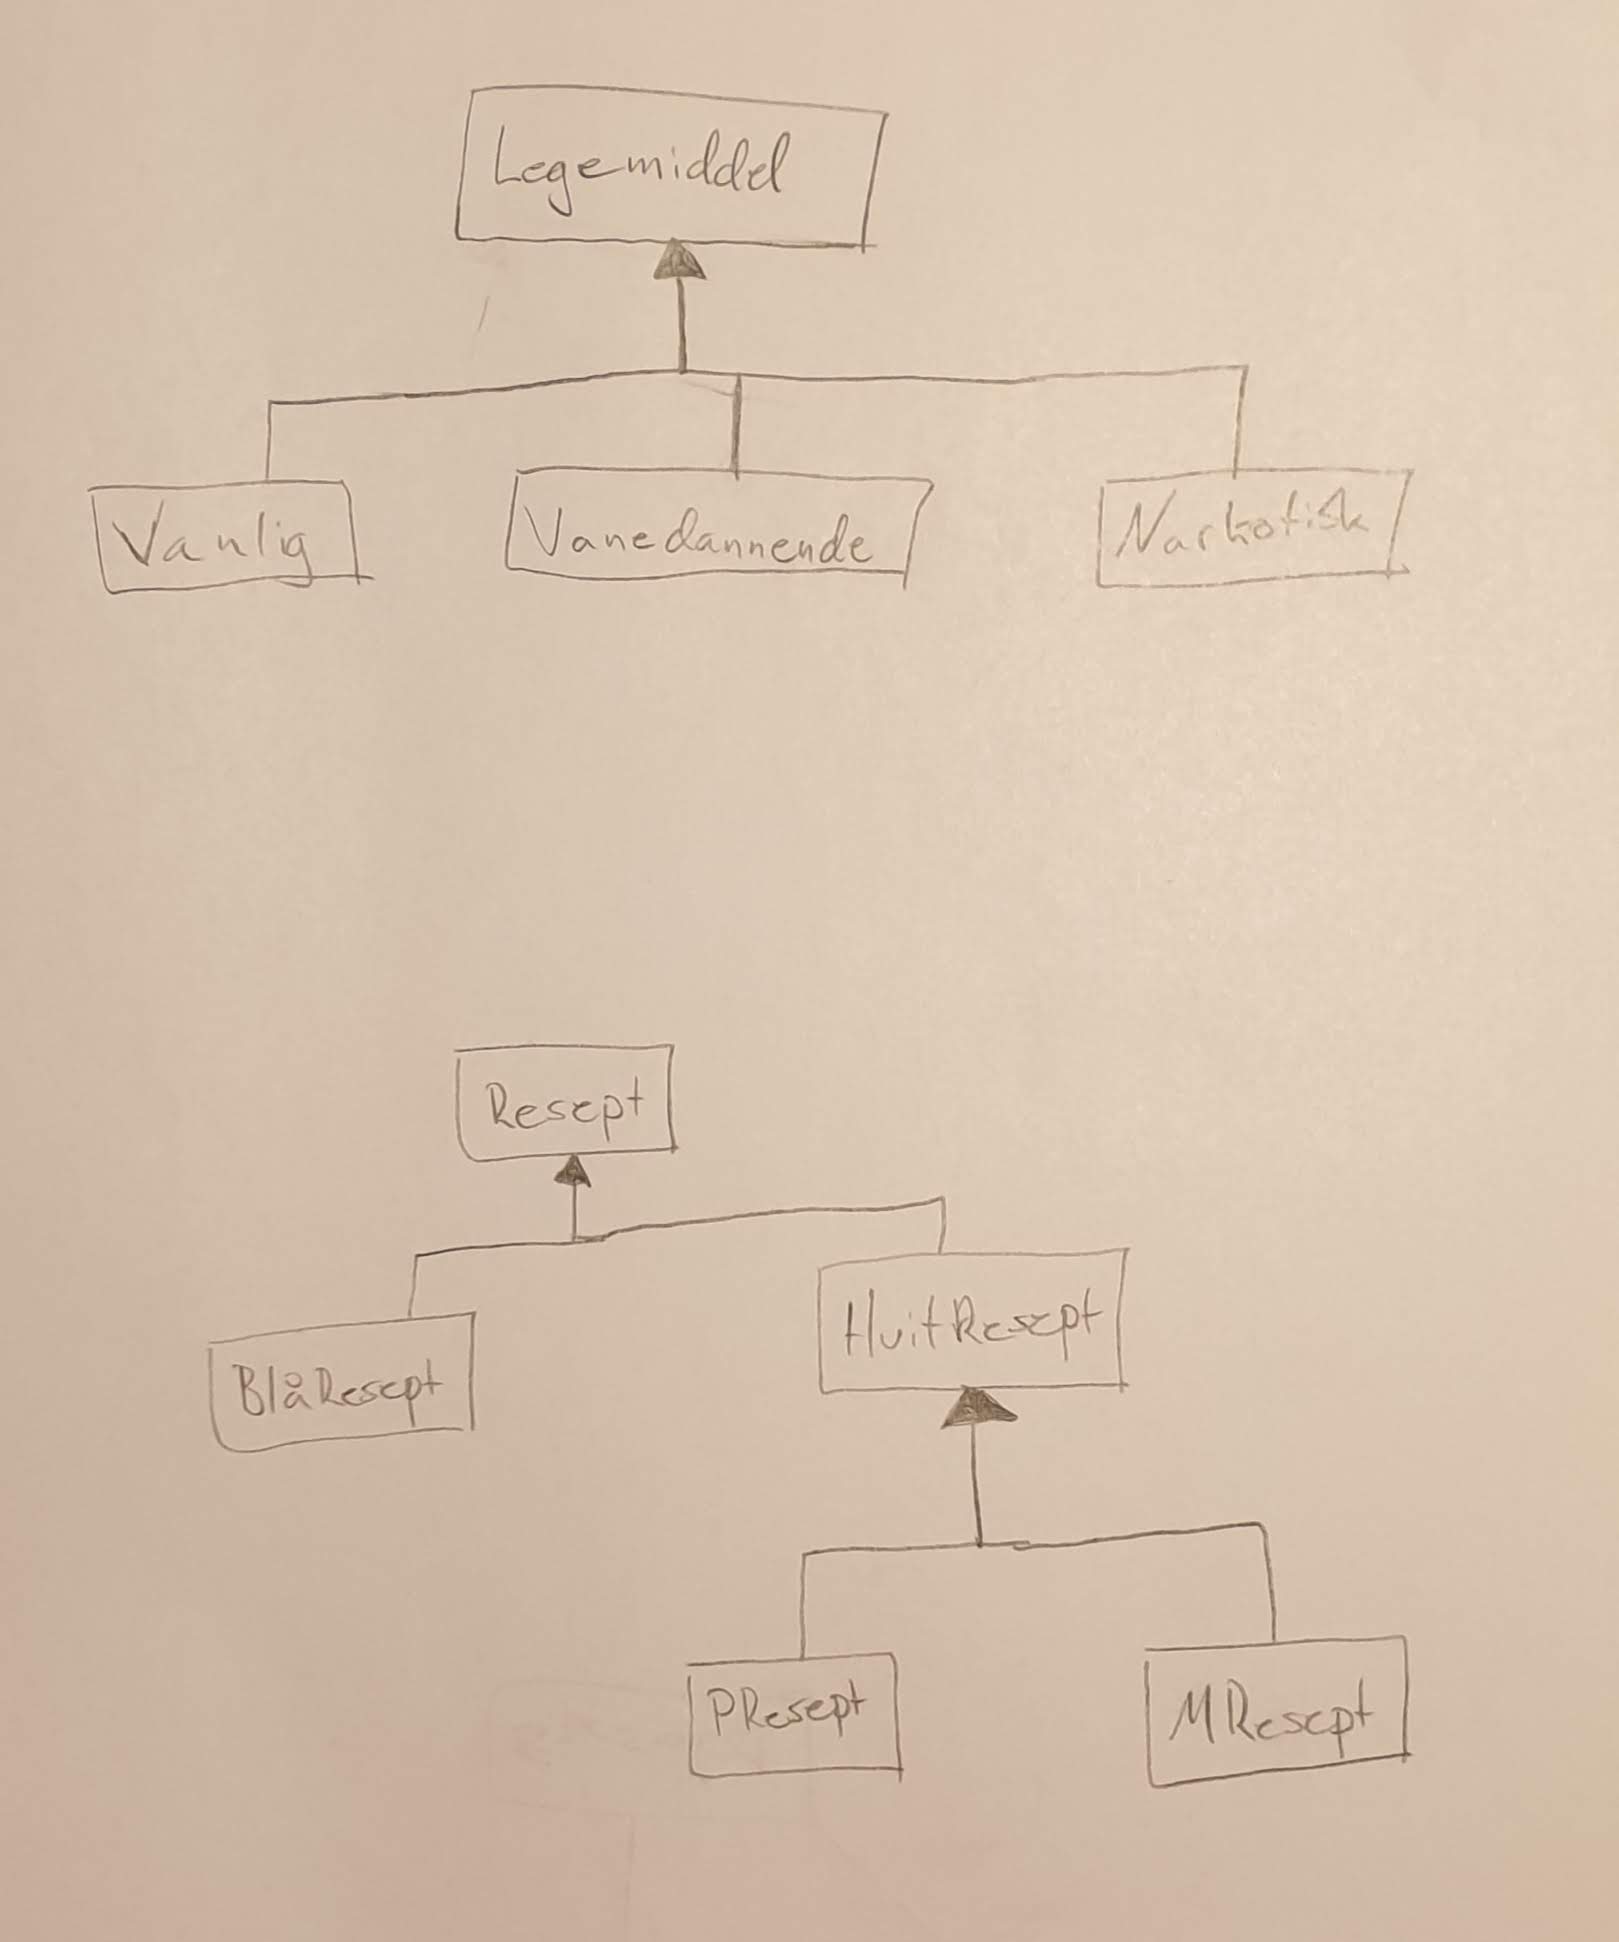 Legemiddel
Vanlig
Vanedannende
Narkotisk
Resept
BlåResept
HvitResept
PResept
MResept